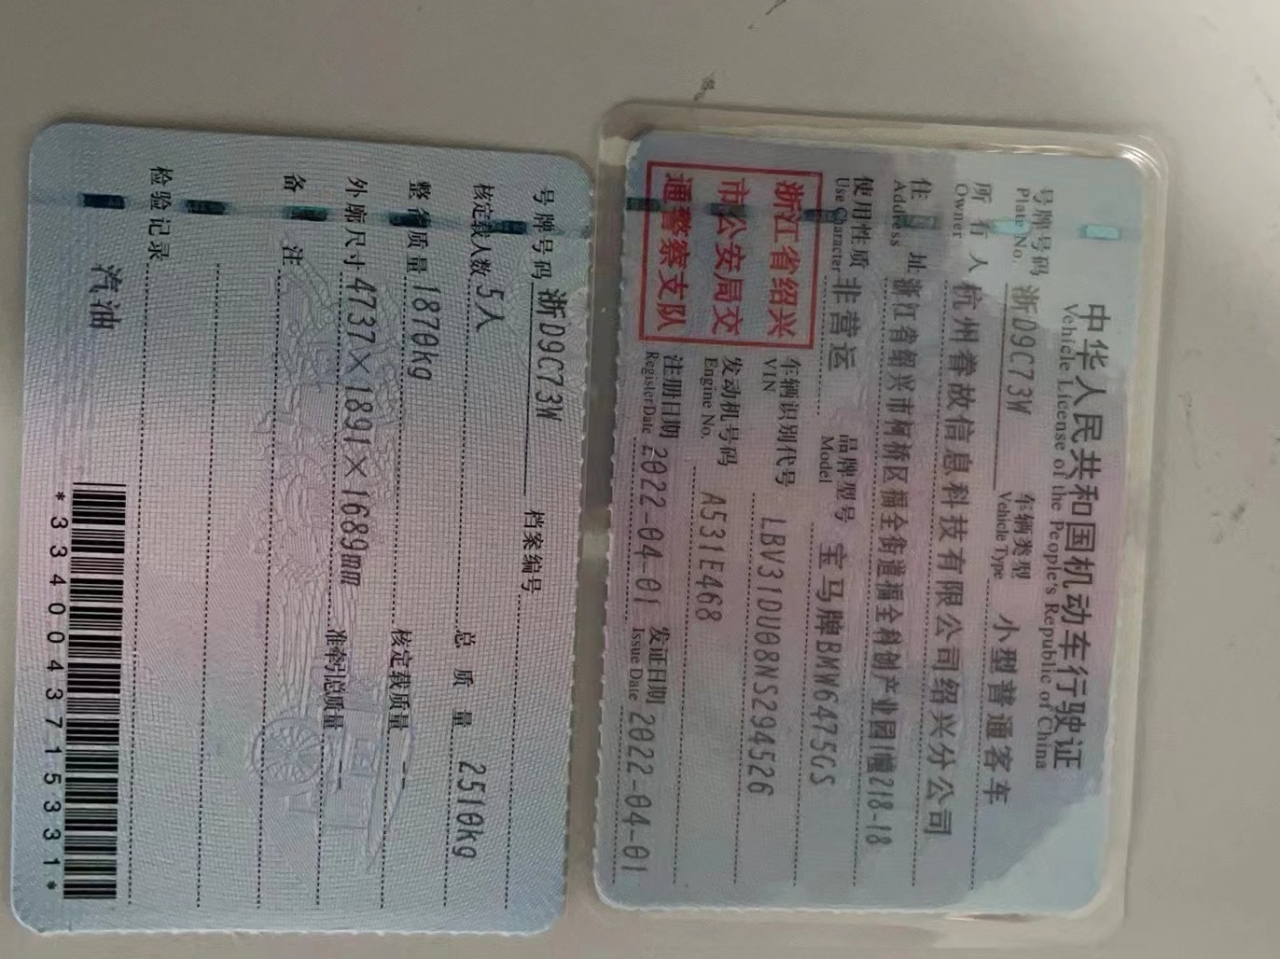 中华人民共和国机动车行驶证
Vehicle License of the People's Republic of China
号牌号码 浙D9C73W 车辆类型 小型普通客车
Plate No. Vehicle Type
所有人 杭州眷故信息科技有限公司绍兴分公司
Owner
住址 浙江省绍兴市柯桥区福全街道福全科创产业园1幢218-18
Address
使用性质 非营运 品牌型号 宝马牌BMW6475GS
Use Character Model
浙江省绍兴
市公安局交
通警察支队
车辆识别代号 LBV31DU08NS294526
VIN
发动机号码 A531E468
Engine No.
注册日期 2022-04-01 发证日期 2022-04-01
Register Date Issue Date
号牌号码 浙D9C73W 档案编号
核定载人数 5人 总质量 2510kg
整备质量 1870kg 核定载质量 --
外廓尺寸 4737×1891×1689mm 准牵引总质量 --
备注
检验记录
汽油
*3340043715331*